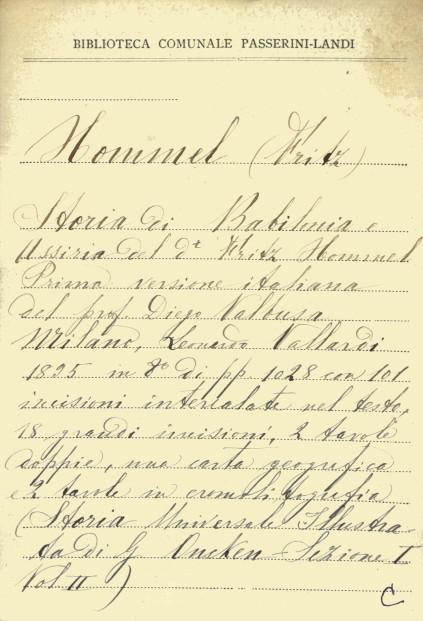 BIBLIOTECA COMUNALE PASSERINI-LANDI
Hommel (Fritz)
Storia di Babilonia e
Assiria del dr Fritz Hommel
Prima versione italiana
del prof. Diego Valbusa
Milano, Leonardo Vallardi
1895 in 8o di pp. 1028 con 101
incisioni intercalate nel testo,
18 grandi incisioni, 2 tavole
doppie, una carta geografica
e 2 tavole in cromolitografia
(Storia Universale Illustra-
ta di G. Oncken - Sezione I
Vol II)
C